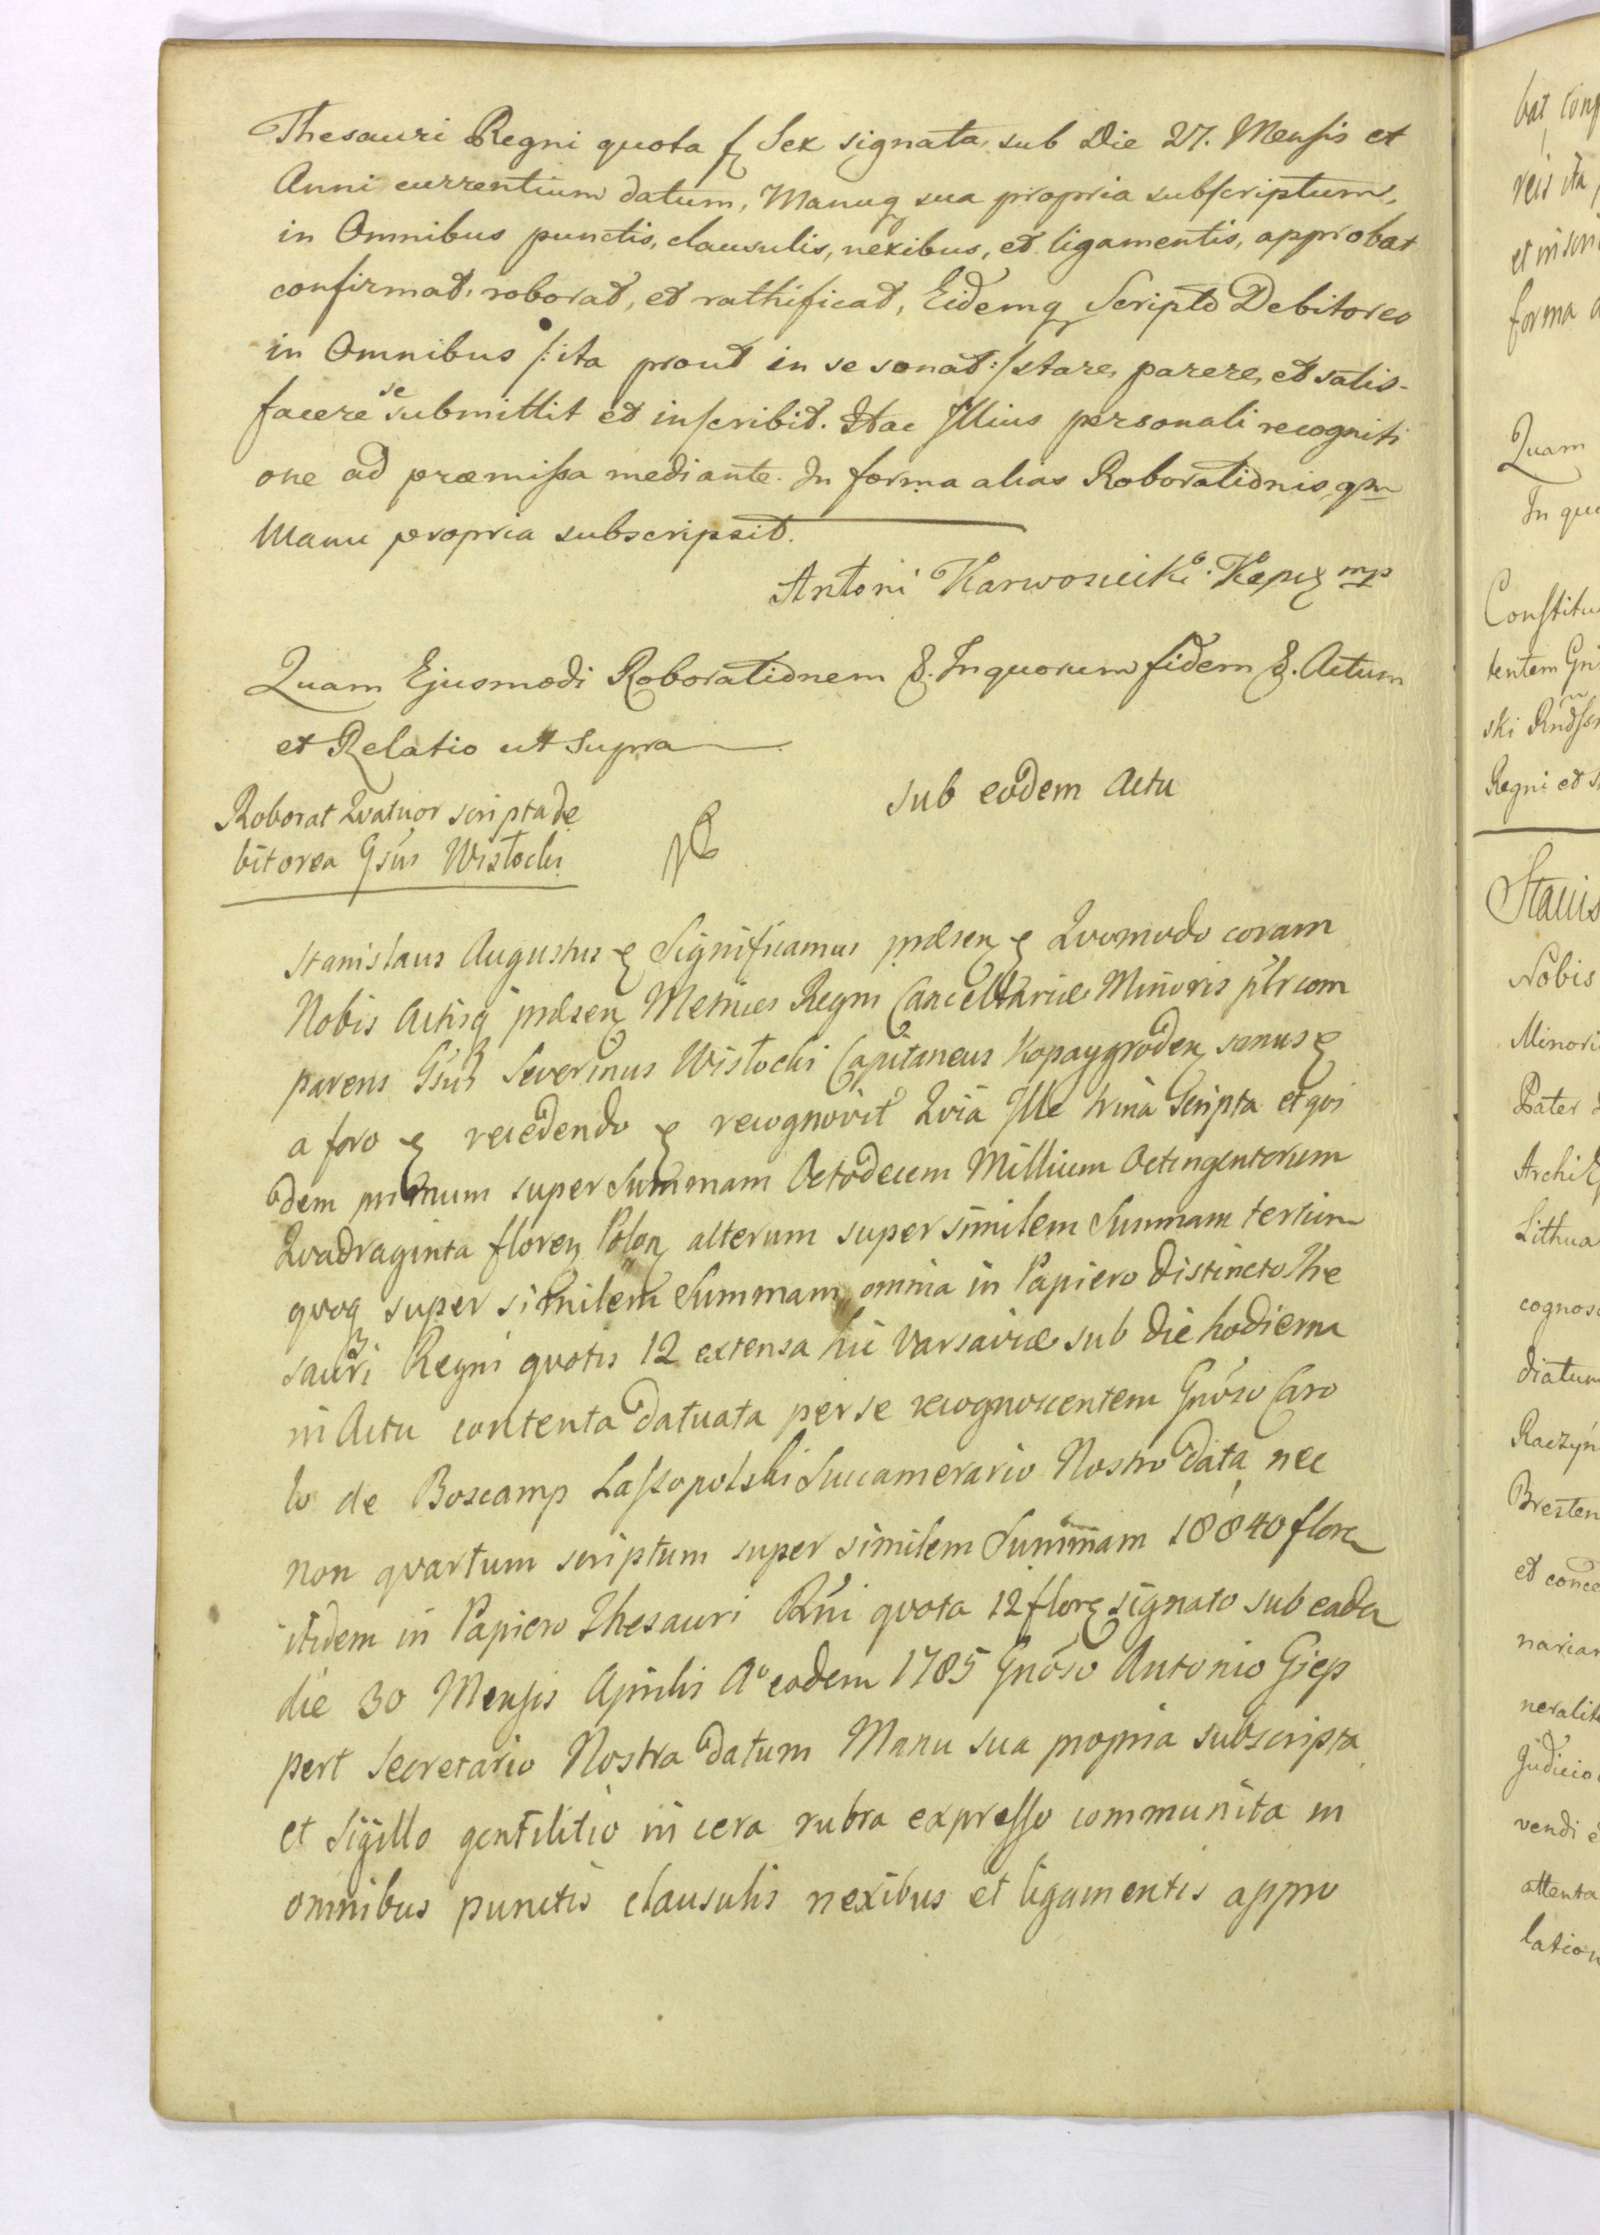 Thesauri Regni quota f Sex signata, sub Die 27. Mensis et
Anni currentium datum, Manuq sua propria subscriptum,
in Omnibus punctis, clausulis, nexibus, et ligamentis, approbat
confirmat, roborat, et rathificat, Eidemq Scripto Debitoreo
in Omnibus /: ita prout in se sonat :/ stare, parere, et satis-
facere se submittit et inscribit. Hac Illius personali recogniti
one ad præmissa mediante. In forma alias Roborationis, qm
Manu propria subscripsit.
Antoni Karwosiecki mp
Quam Ejusmodi Roborationem &. In quorum fidem &. Actum
et Relatio ut Supra
sub eodem Actu
Roborat Quatuor scripta de
bitorea Gsus Wisłocki
Stanislaus Augustus & Significamus præsen & Quomodo coram
Nobis Actisq præsen Metrices Regni Cancellariæ Minoris plr com
parens Gsus Severinus Wisłocki Capitaneus Kopaygroden sanus &
a foro & recedendo & recognovit Quia Ille trina Scripta et qvi
dem primum super Summam Octodecem Millium Octingentorum
Quadraginta floren Polon alterum super similem Summam tertium
qvoq super similem Summam omnia in Papiero distincto The
sauri Regni qvotis 12 extensa hic Varsaviæ sub die hodierna
in Actu contenta datuata per se recognoscentem Gnoso Caro
lo de Boscamp Lassopolski Succamerario Nostro data nec
non qvartum scriptum super similem Summam 18840 floren
itidem in Papiero Thesauri Rni qvota 12 floren signato sub eadem
die 30 Mensis Aprilis Aº eodem 1785 Gnoso Antonio Giep
pert Secretario Nostra datum Manu sua propria subscripta
et Sigillo gentilitio in cera rubra expresso communita in
omnibus punctis clausulis nexibus et ligamentis appro
bat
reis ita
forma
Quam
In quo
Constitu
tentem
ski
Regni et
Stanis
Nobis
Minori
Pater
Archi
Lithua
cognosc
diatum
Raczyn
Bresten
et conce
narian
neralit
Judicio
vendi
attenta
lation